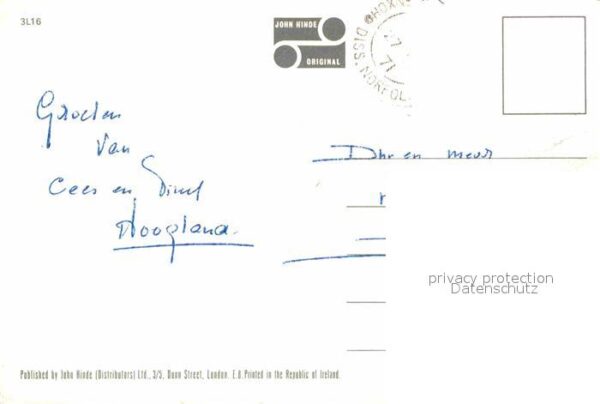 3L16
JOHN HINDE
ORIGINAL
DISS. NORFOL
71
Groeten
Van
Cees en
Hoogland.
Dhr en mevr
privacy protection
Datenschutz
Published by John Hinde (Distributors) Ltd., 3/5, Dunn Street, London. E.8. Printed in the Republic of Ireland.